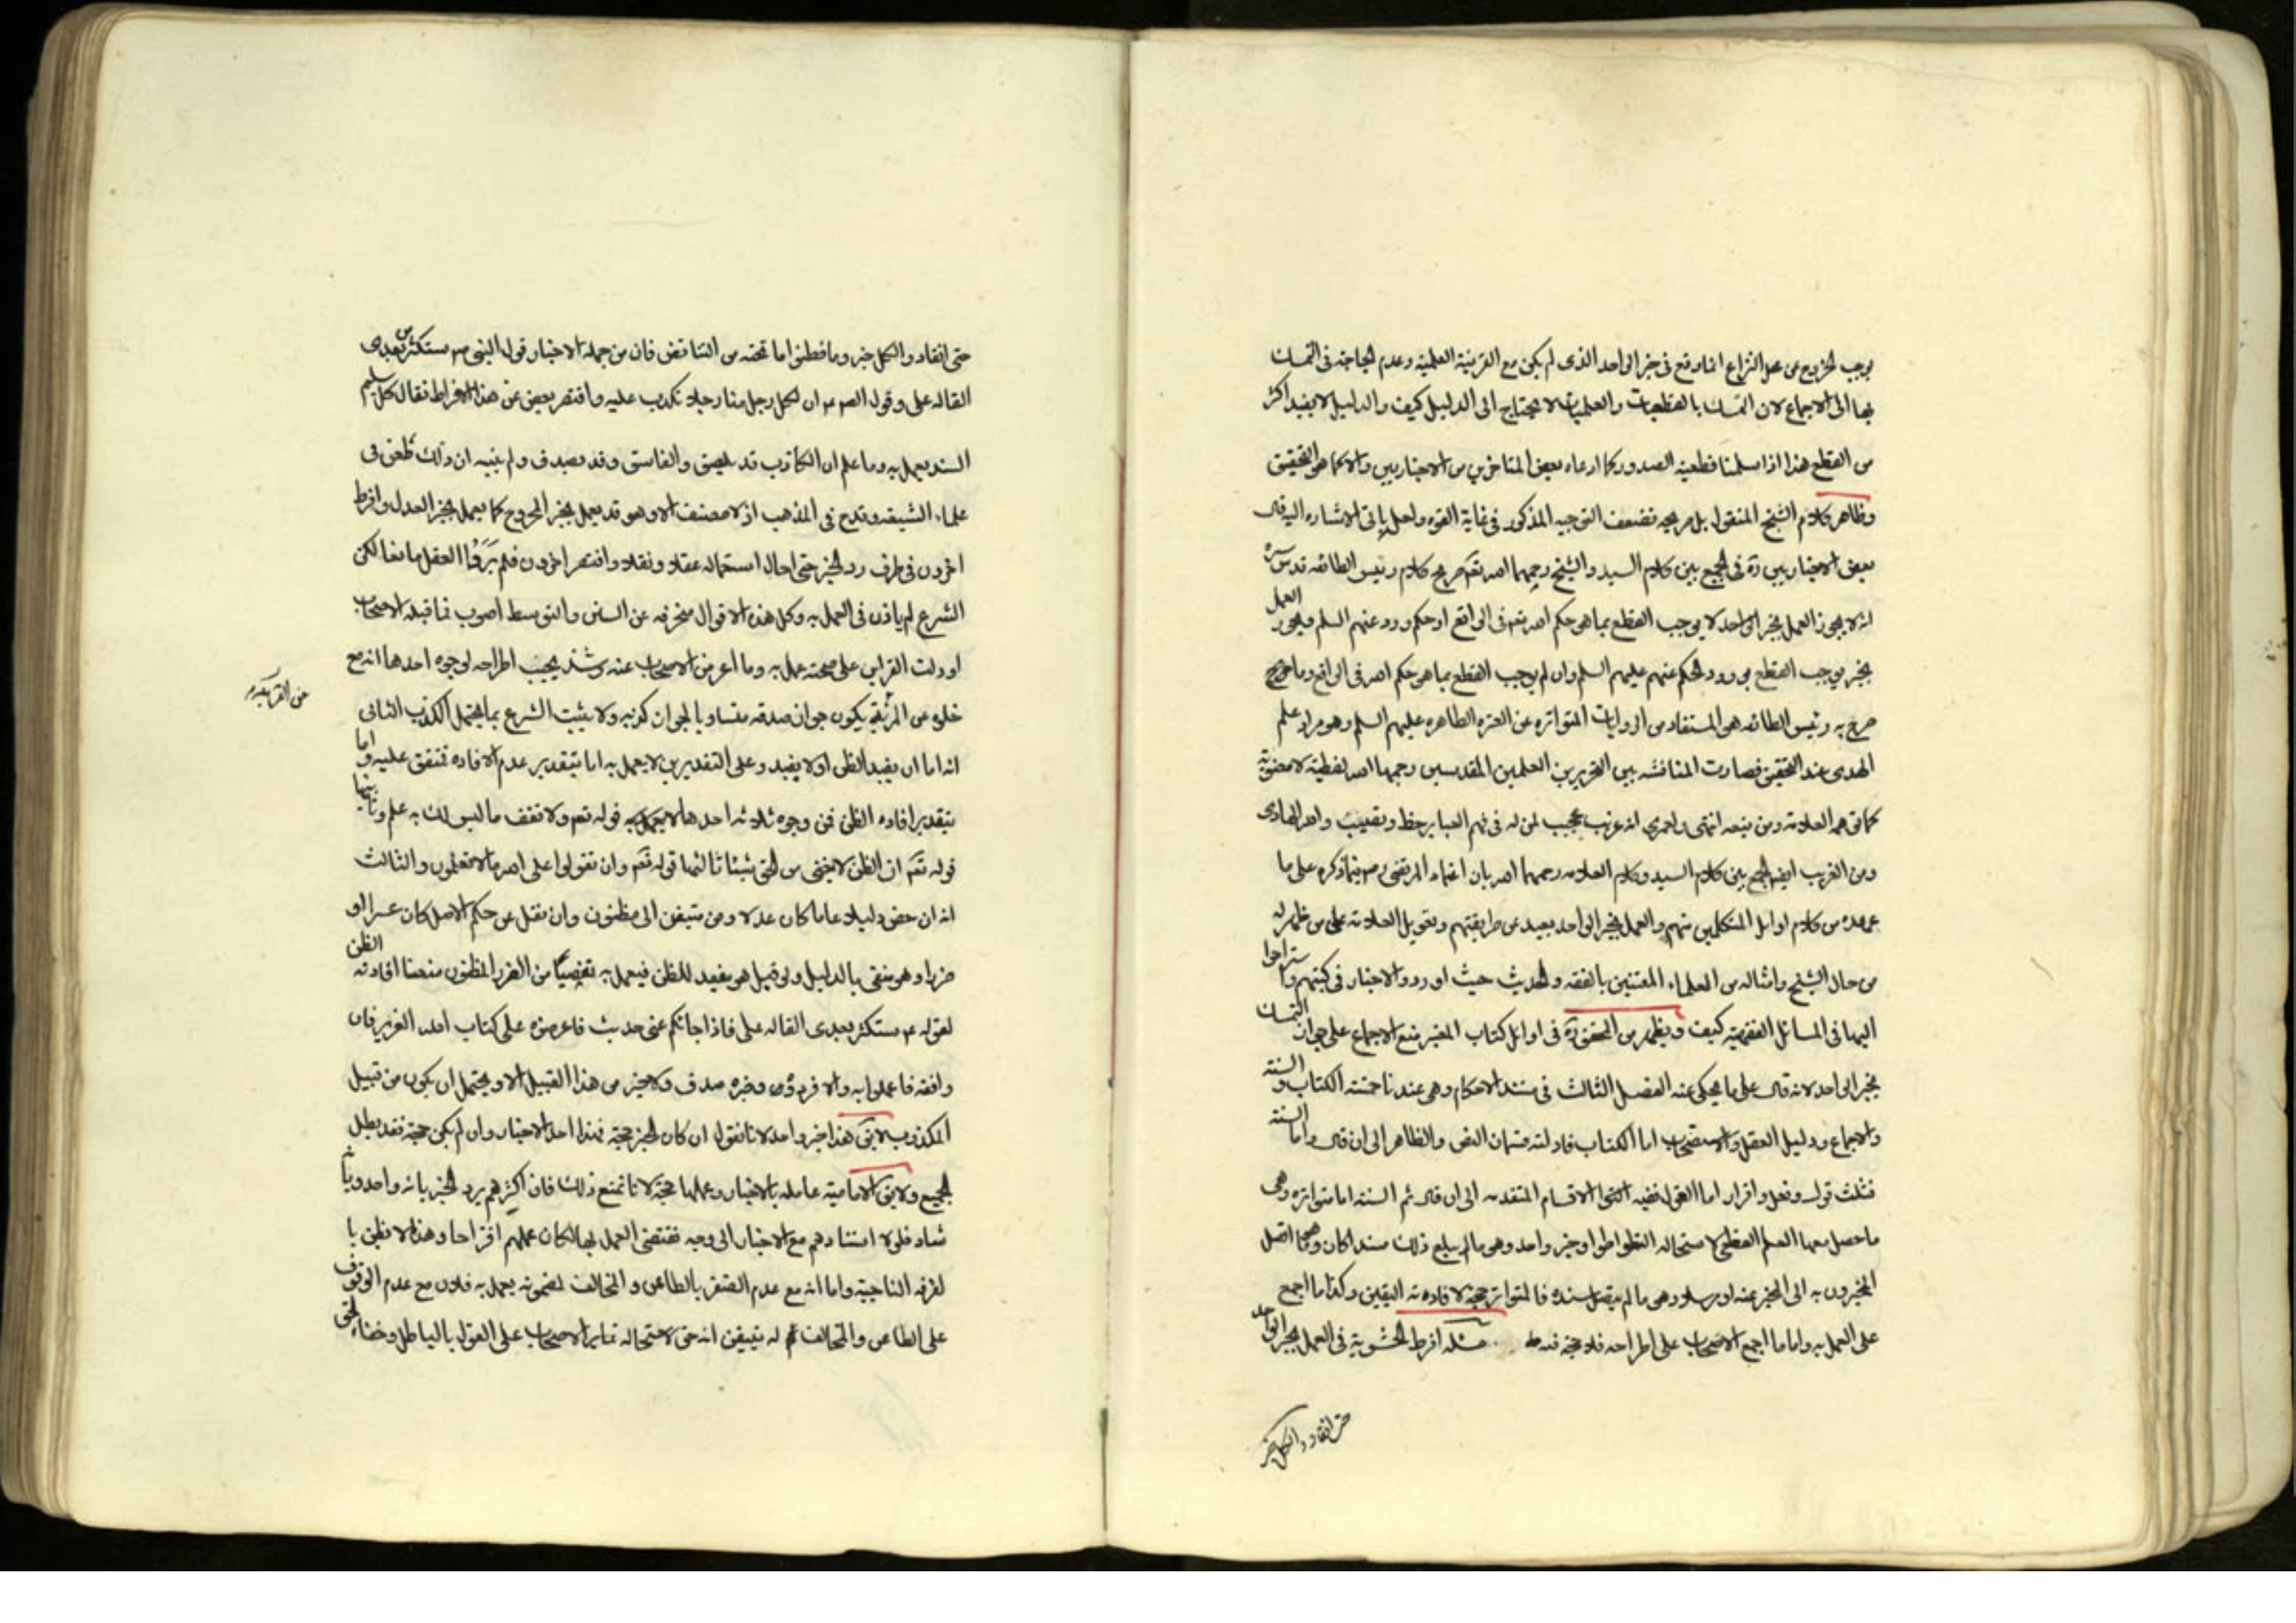 يوجب الخروج عن محل النزاع انما وقع فى خبر الواحد الذى لم يكن مع القرينة العلمية وعدم الحاجة فى التمسك
بها الى الاجماع لان التمسك بالقطعيات والعلميات لا يحتاج الى الدليل كيف والدليل لا يفيد اكثر
من القطع هذا اذا سلمنا قطعية الصدور كما ادعاه بعض المتاخرين من الاخباريين والا كما هو التحقيق
وظاهر كلام الشيخ المنقول بل صريحه فضعف التوجيه المذكور فى غاية القوه ولعل ياتى الاشاره اليه قال
بعض الاخباريين ره فى الجمع بين كلام السيد والشيخ رحمهما الله تعالى صريح كلام رئيس الطائفه قدس سره
انه لا يجوز العمل بخبر الواحد لا يوجب القطع بما هو حكم الله تعم فى الواقع او حكم ورد عنهم السلم ويجوز العمل
بخبر يوجب القطع بورود الحكم عنهم عليهم السلم وان لم يوجب القطع بما هو حكم الله فى الواقع وما
صرح به رئيس الطائفه هو المستفاد من الروايات المتواتره عن العترة الطاهره عليهم السلم وهو مراد علم
الهدى عند التحقيق فصارت المناقشه بين النحريرين العلمين المقدسين رحمهما الله لفظية لا معنوية
كما توهمه العلامة ومن تبعه انتهى ولعمرى انه غريب عجيب لمن له فى فهم العباير حظ ونصيب والله الهادى
ومن الغريب ايضا الجمع بين كلام السيد وكلام العلامه رحمهما الله بان اعتماد المرتضى رحمه فيما ذكره على ما
عهده من كلام اوايل المتكلمين منهم والعمل بخبر الواحد بعيد عن طريقتهم وتعويل العلامة على من ظهر له
من حال الشيخ وامثاله من العلماء المعتنين بالفقه والحديث حيث اوردوا الاخبار فى كتبهم واستراحوا
اليها فى المسائل الفقهية كيف ويظهر من المحقق ره فى اوائل كتاب المعتبر منع الاجماع على جواز التمسك
بخبر الواحد لانه قال على ما يحكى عنه الفصل الثالث فى مستند الاحكام وهى عندنا خمسة الكتاب والسنة
والاجماع ودليل العقل والاستصحاب اما الكتاب فادلته قسمان النص والظاهر الى ان قال واما السنة
فثلث قول وفعل واقرار اما القول ففيه الاقسام المتقدمه الى ان قال ثم السنة اما متواتره وهى
ما حصل معها العلم القطعى لاستحاله التواطوا وخبر واحد وهو ما لم يبلغ ذلك مسندا كان وهو ما اتصل
المخبرون به الى المخبر عنه او مرسلا وهو ما لم يتصل سنده فالمتواتر حجة لافادته اليقين وكذا ما اجمع
على العمل به واما ما اجمع الاصحاب على اطراحه فلا حجة فيه مسئله افرط الحشوية فى العمل بخبر الواحد
حتى انقادوا لكل خبر
حتى انقادوا لكل خبر وما فطنوا ما تحته من التناقض فان من جملة الاخبار قول النبى ص ستكثر من بعدى
القاله على وقول الصادق ان لكل رجل منا رجلا يكذب عليه واقتصر بعض عن هذا الافراط فقال كل سليم
السند يعمل به وما علم ان الكاذب قد يلصق والفاسق وقد يصدق ولم ينبه ان ذلك طعن فى
علماء الشيعه وقدح فى المذهب اذ لا مصنف الا وهو قد يعمل بخبر المجروح كما يعمل بخبر العدل وافرط
اخرون فى طرف رد الخبر حتى احال استعماله عقلا ونقلا واقتصر اخرون فلم يروا العقل مانعا لكن
الشرع لم ياذن فى العمل به وكل هذه الاقوال منحرفه عن السنن والتوسط اصوب فما قبله الاصحاب
او دلت القراين على صحته عمل به وما اعرض الاصحاب عنه وشذ يجب اطراحه لوجوه احدها انه مع
خلوه عن المزيه يكون جواز صدقه متساويا لجواز كذبه ولا يثبت الشرع بما يحتمل الكذب الثانى
انه اما ان يفيد الظن او لا يفيد وعلى التقديرين لا يعمل به اما بتقدير عدم الافاده فمتفق عليه واما
بتقدير افاده الظن فمن وجوه ثلاثه احدها قوله تعم ولا تقف ما ليس لك به علم وثانيها
قوله تعم ان الظن لا يغنى من الحق شيئا ثالثها قوله تعم وان تقولوا على الله ما لا تعلمون والثالث
انه ان خص دليلا عاما كان عدولا ومن متيقن الى مظنون وان نقل عن حكم الاصل كان عسرا او
ضررا وهو منفى بالدليل ولو قيل هو مفيد للظن فيعمل به تفصيا من الضرر المظنون منعنا افادته الظن
لقوله ع ستكثر بعدى القاله على فاذا جائكم عنى حديث فاعرضوه على كتاب الله العزيز فان
وافقه فاعملوا به والا فردوه وخبره صدق ولا خبر من هذا القبيل الا ويحتمل ان يكون من قبيل
المكذوب لا يق هذا خبر واحد لانا نقول ان كان الخبر حجة فهذا احد الاخبار وان لم يكن حجة فقد بطل
الجميع ولا يق الامامية عامله بالاخبار وعملها حجة لانا نمنع ذلك فان اكثرهم يرد الخبر بانه واحد وبانه
شاذ فلولا استنادهم مع الاخبار الى وجه يقتضى العمل بها لكان عملهم اقتراحا وهذا لا يظن با
لفرقه الناجية واما انه مع عدم الظفر بالطاعن والمخالف لمضمونه يعمل به فلان مع عدم الوقوف
على الطاعن والمخالف له يتيقن انه حق لاستحاله تمالئ الاصحاب على القول بالباطل وخفاء الحق